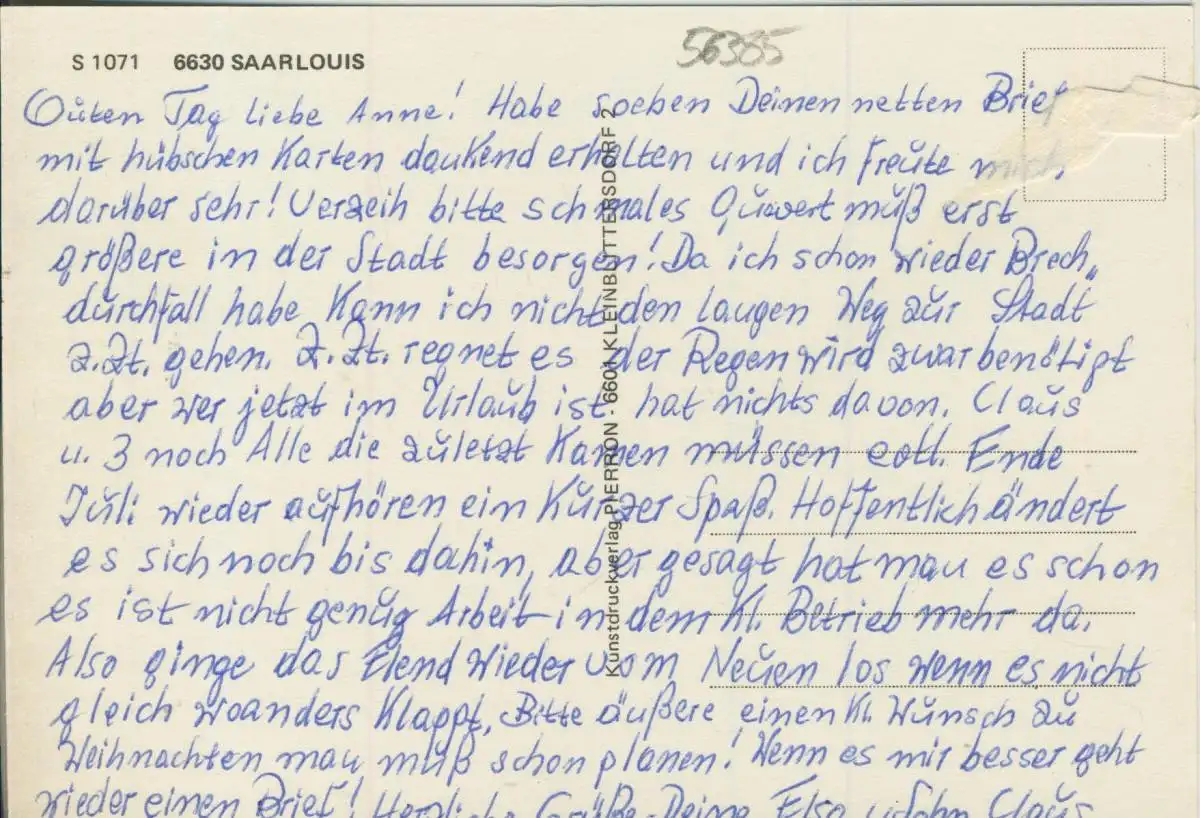 S 1071 6630 SAARLOUIS
56385
Guten Tag liebe Anne! Habe soeben Deinen netten Brief
mit hübschen Karten dankend erhalten und ich freute mich
darüber sehr! Verzeih bitte schmales Quwert muß erst
größere in der Stadt besorgen! Da ich schon wieder Brech„
durchfall habe Kann ich nicht den langen Weg zur Stadt
z.Zt. gehen. Z.Zt. regnet es der Regen wird zwar benötigt
aber wer jetzt im Urlaub ist hat nichts davon. Claus
u. 3 noch Alle die zuletzt Kamen müssen evtl. Ende
Juli wieder aufhören ein Kurzer Spaß. Hoffentlich ändert
es sich noch bis dahin, aber gesagt hat man es schon
es ist nicht genug Arbeit in dem Kl. Betrieb mehr da.
Also ginge das Elend wieder vom Neuen los wenn es nicht
gleich woanders Klappt, Bitte äußere einen Kl. Wunsch zu
Weihnachten man muß schon planen! Wenn es mir besser geht
wieder einen Brief! Herzliche Grüße Deine Else u. Sohn Claus
Kunstdruckverlag PIERRON · 6601 KLEINBUTTERSDORF 2